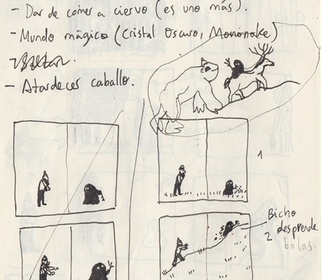 - Dar de comer a ciervo (es uno más).
- Mundo mágico (Cristal Oscuro, Mononoke)
- Atardecer caballo.
1
Bicho
2 desprende
bolas